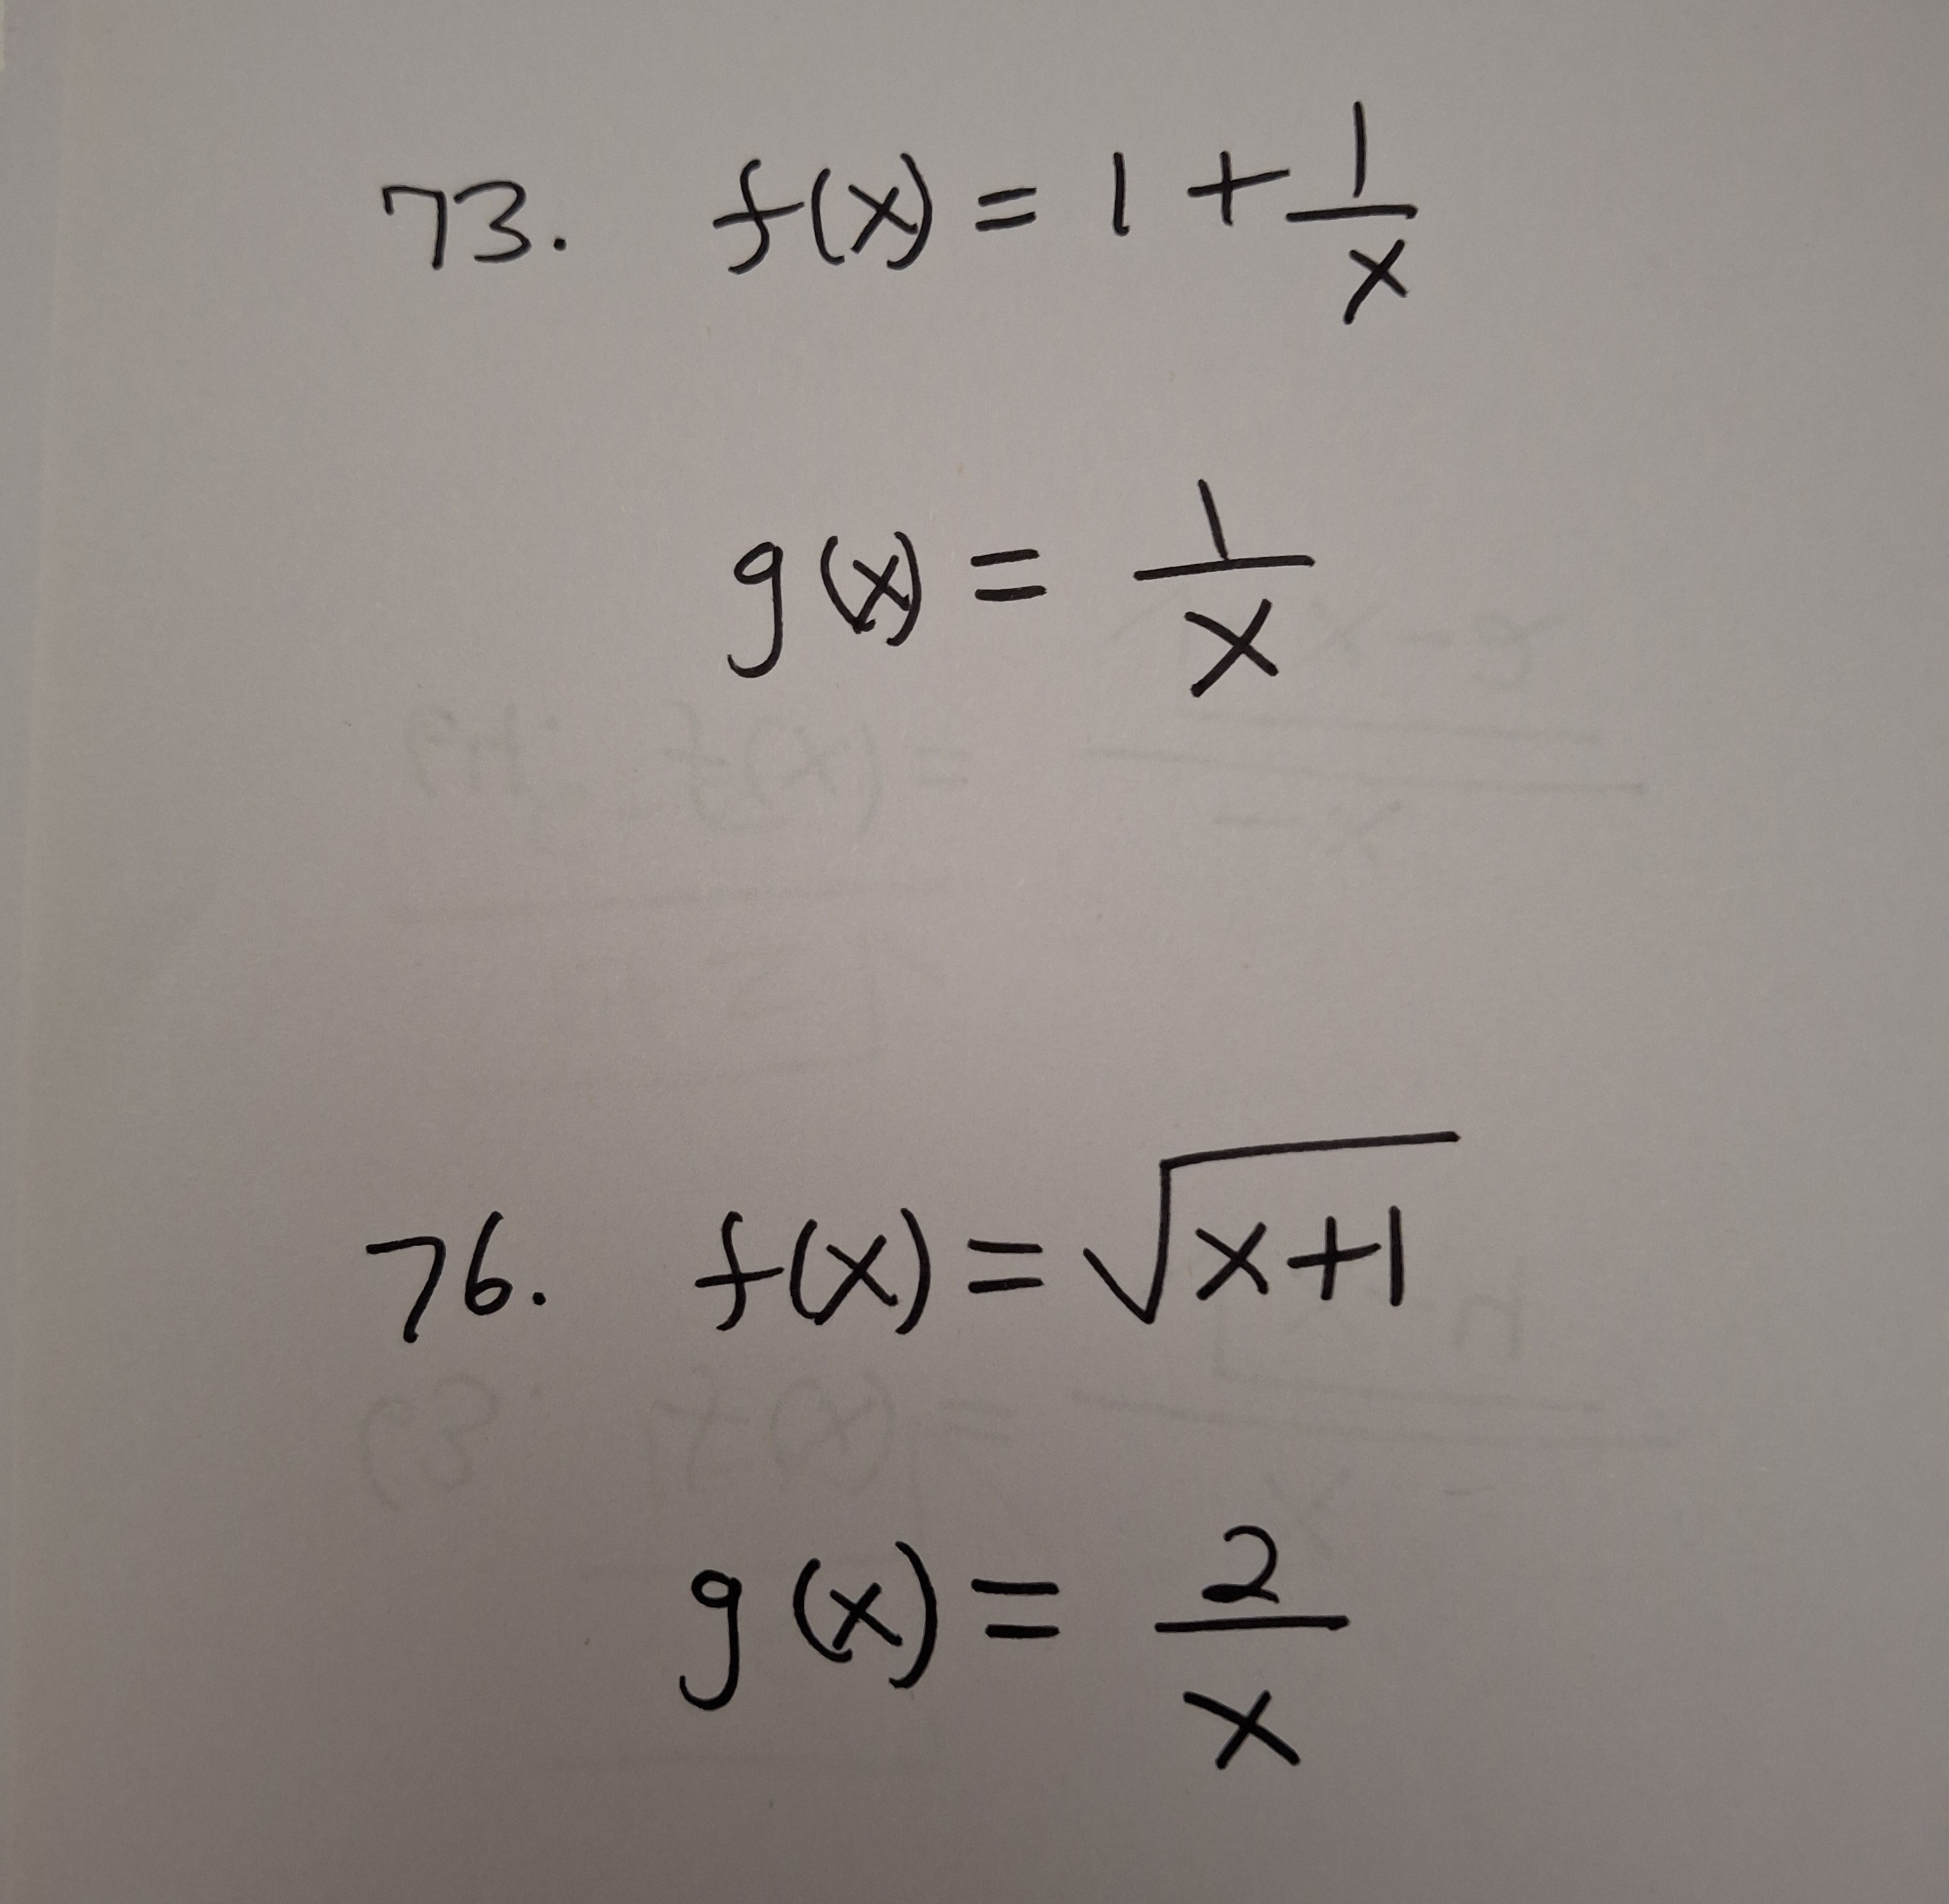 73. f(x) = 1 + 1/x
g(x) = 1/x
76. f(x) = √(x+1)
g(x) = 2/x